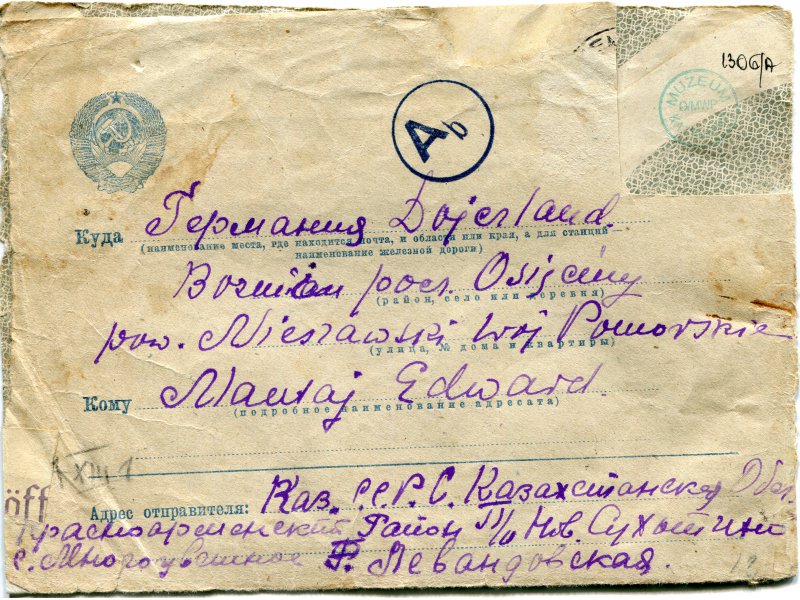 1306/A
MUZEUM
D/MWP
Ab
Куда Германия Dojcsland.
(наименование места, где находится почта, и области или края, а для станций
наименование железной дороги)
pocz. Osięciny
(район, село или деревня)
pow. Nieszawski woj Pomorskie
(улица, № дома и квартиры)
Кому Mantaj Edward.
(подробное наименование адресата)
öff
Адрес отправителя: Каз. С.С.Р. С. Казахстанская Обл.
Красноармейский Район
с. Многоцветное Р. Левандовская.